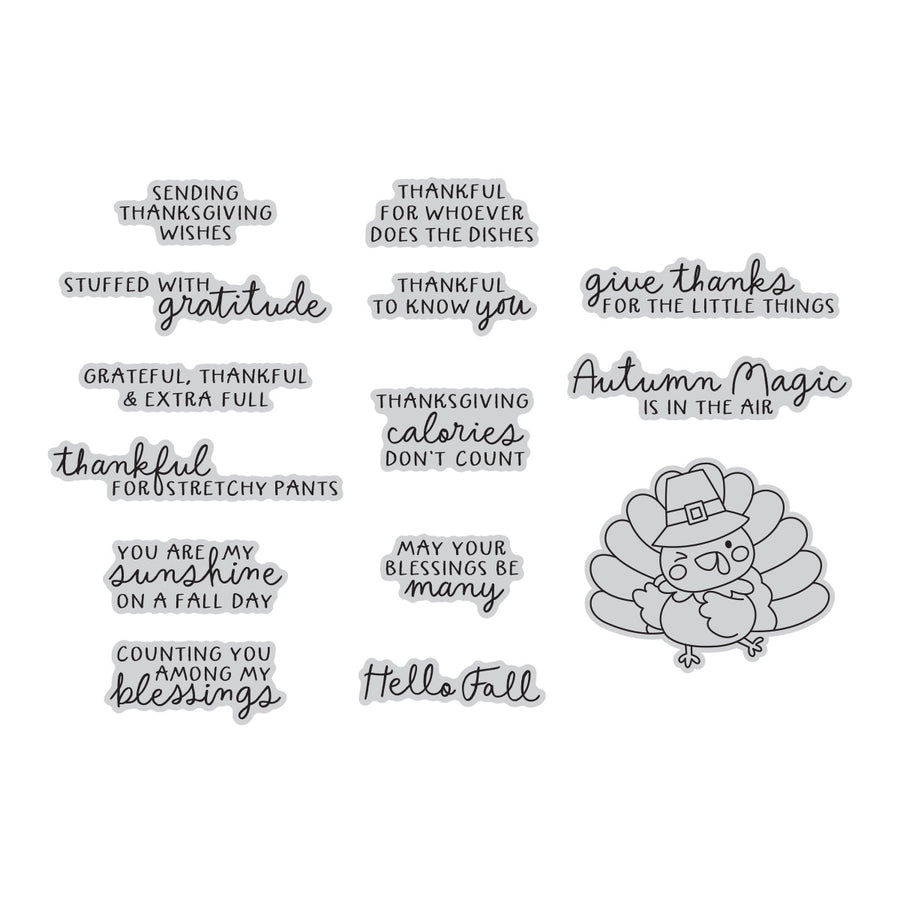 SENDING
THANKSGIVING
WISHES
STUFFED WITH
gratitude
GRATEFUL, THANKFUL
& EXTRA FULL
thankful
FOR STRETCHY PANTS
YOU ARE MY
sunshine
ON A FALL DAY
COUNTING YOU
AMONG MY
blessings
THANKFUL
FOR WHOEVER
DOES THE DISHES
THANKFUL
TO KNOW you
THANKSGIVING
calories
DON'T COUNT
MAY YOUR
BLESSINGS BE
many
Hello Fall
give thanks
FOR THE LITTLE THINGS
Autumn Magic
IS IN THE AIR